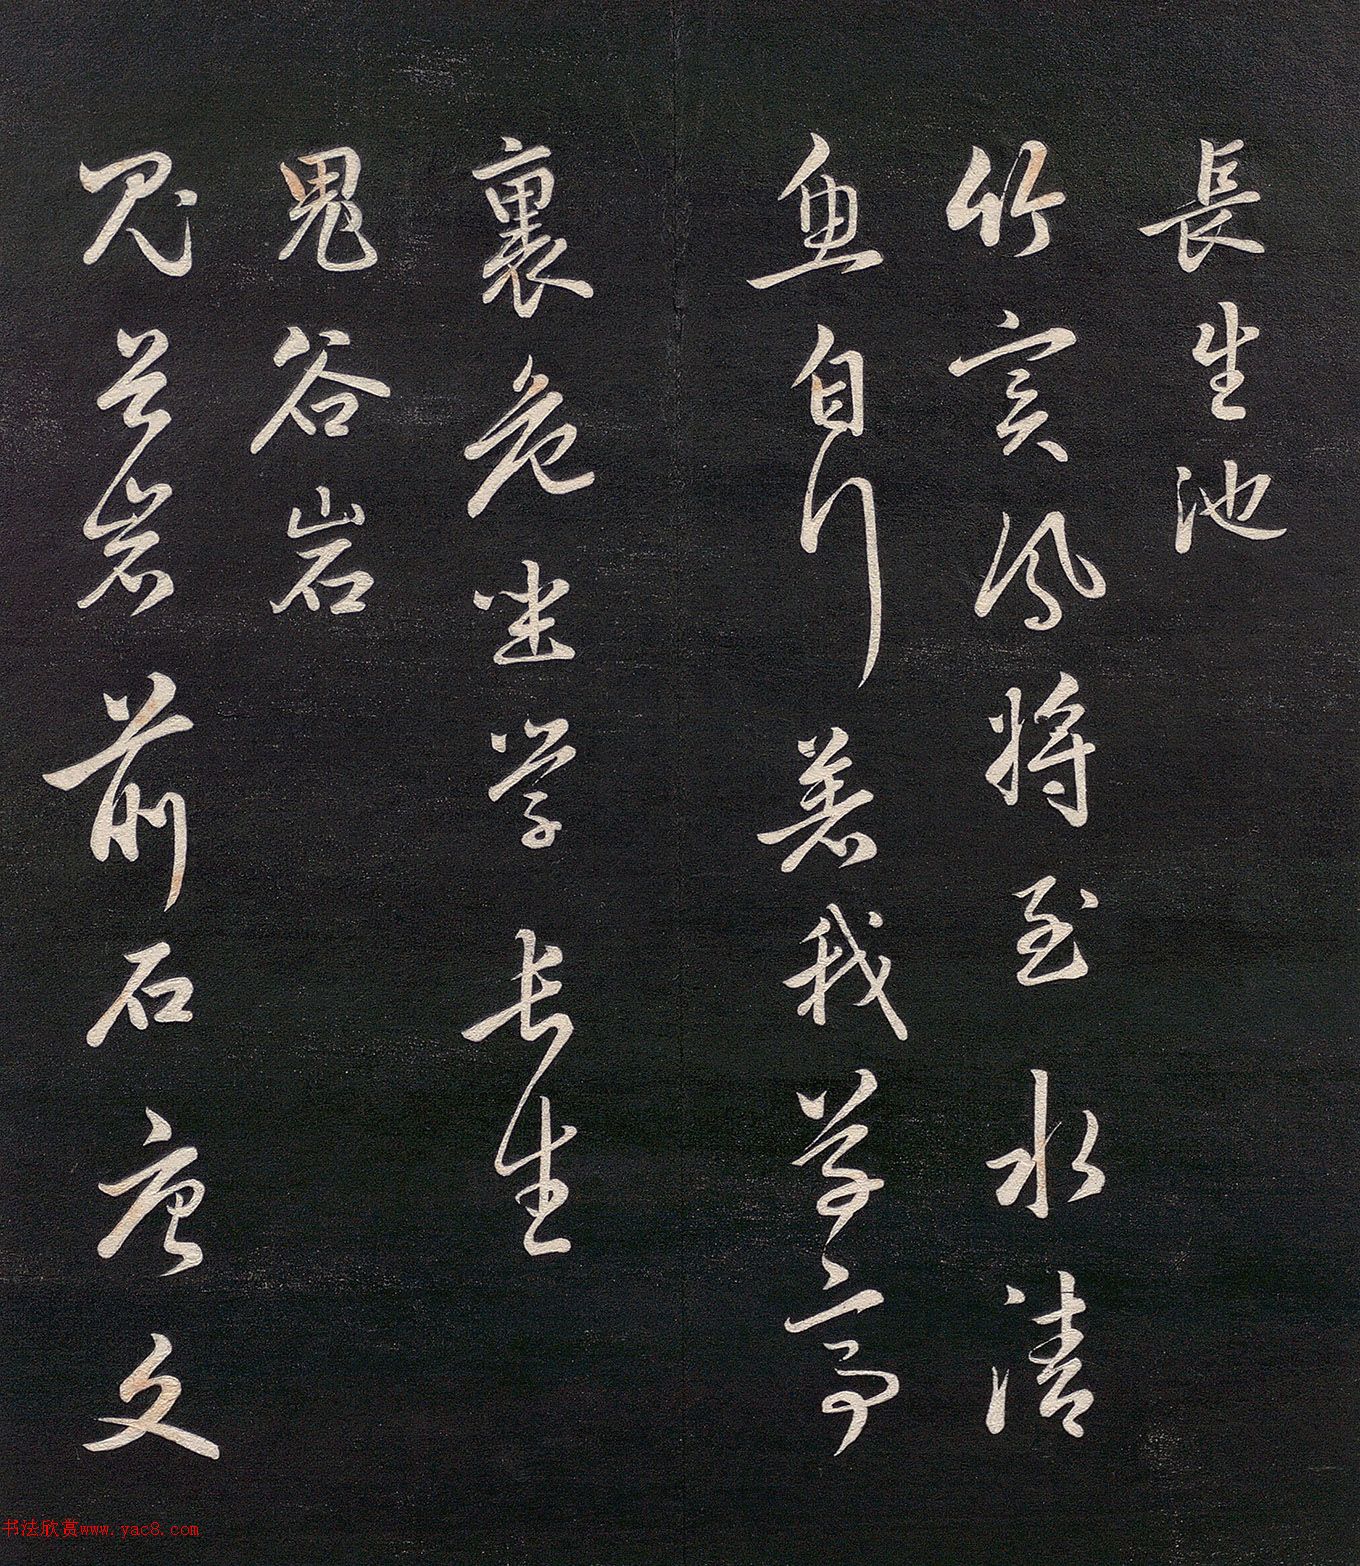 長生池
竹實鳳將至水清
魚自行着我茅亭
裏危坐学長生
鬼谷岩
鬼谷岩前石唐文
书法欣赏www.yac8.com